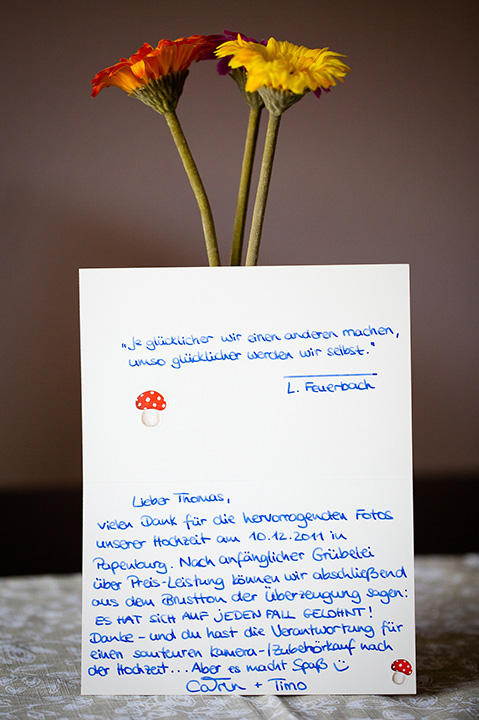 „Je glücklicher wir einen anderen machen,
umso glücklicher werden wir selbst."
L. Feuerbach
Lieber Thomas,
vielen Dank für die hervorragenden Fotos
unserer Hochzeit am 10.12.2011 in
Papenburg. Nach anfänglicher Grübelei
über Preis-Leistung können wir abschließend
aus dem Brustton der Überzeugung sagen:
ES HAT SICH AUF JEDEN FALL GELOHNT!
Danke - und du hast die Verantwortung für
einen sauteuren Kamera-/Zubehörkauf nach
der Hochzeit... Aber es macht Spaß ☺
Catrin + Timo